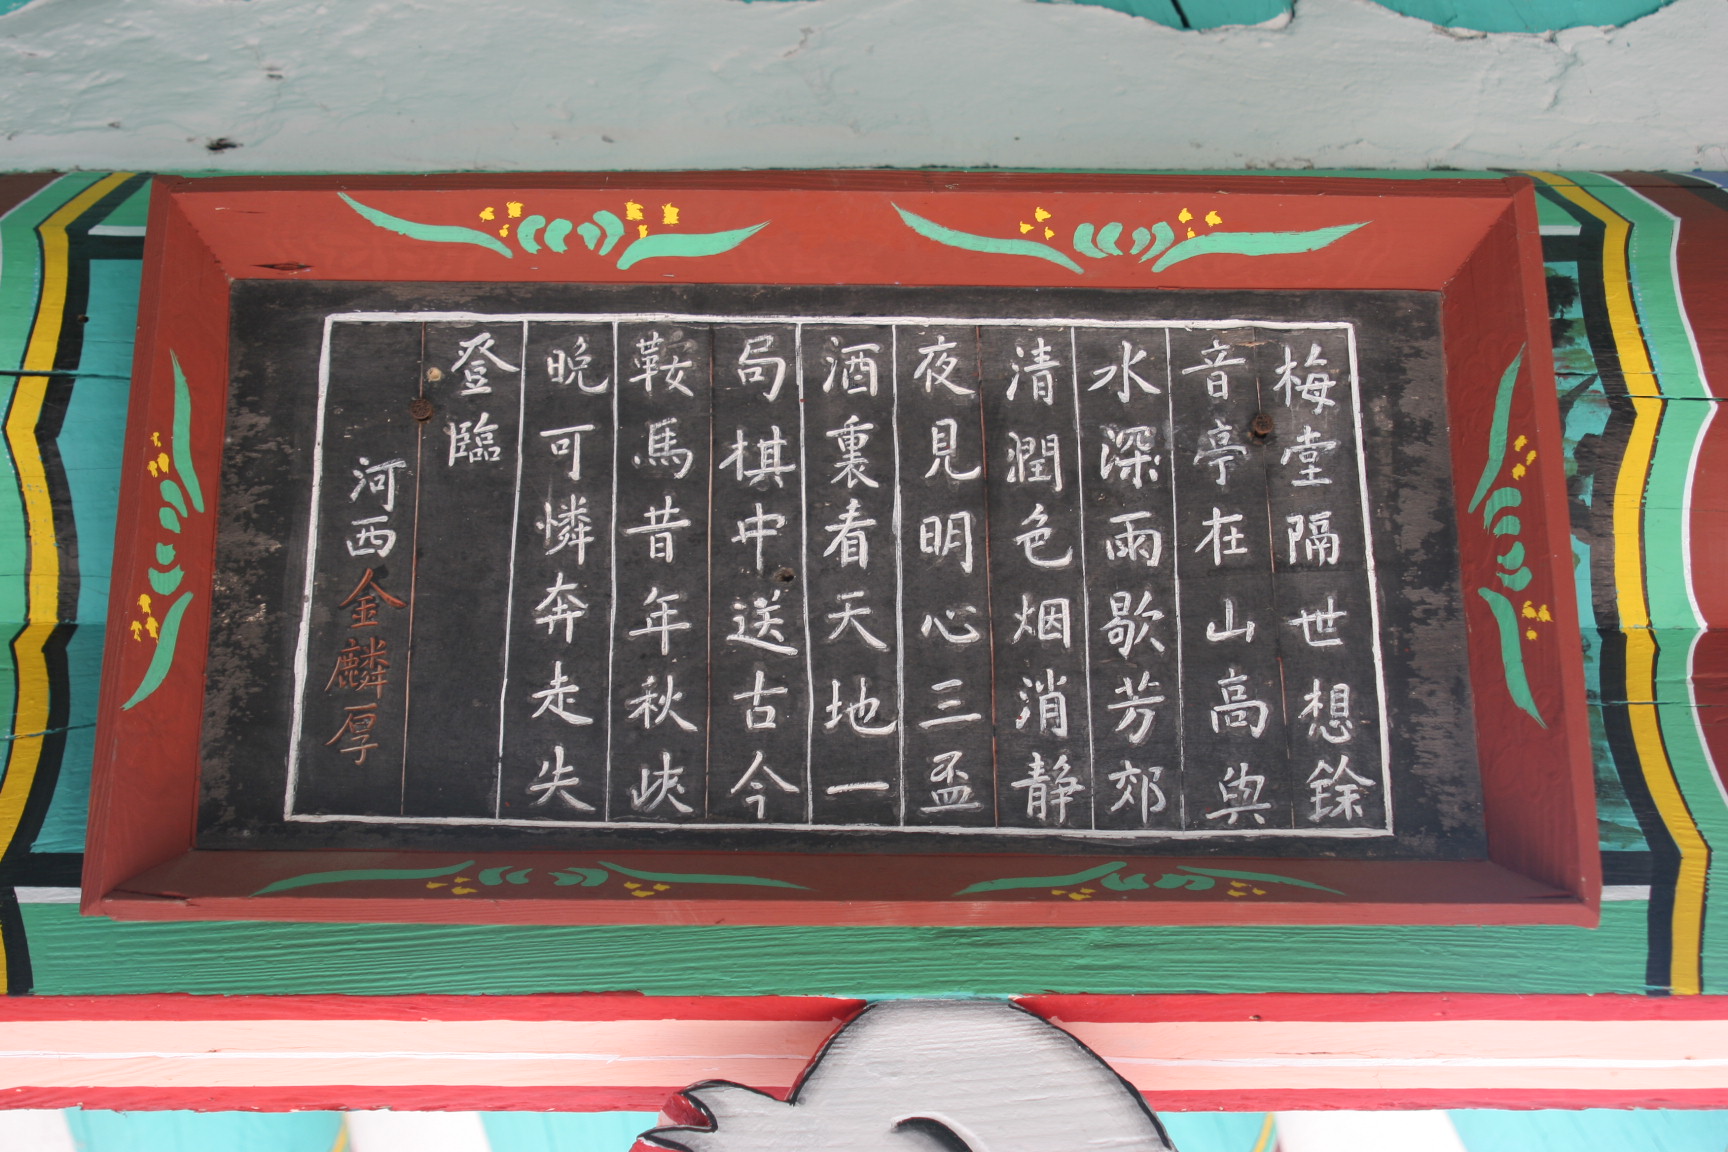 梅堂隔世想餘
音亭在山高與
水深雨歇芳郊
清潤色烟消静
夜見明心三盃
酒裏看天地一
局棋中送古今
鞍馬昔年秋峽
晩可憐奔走失
登臨
河西金麟厚